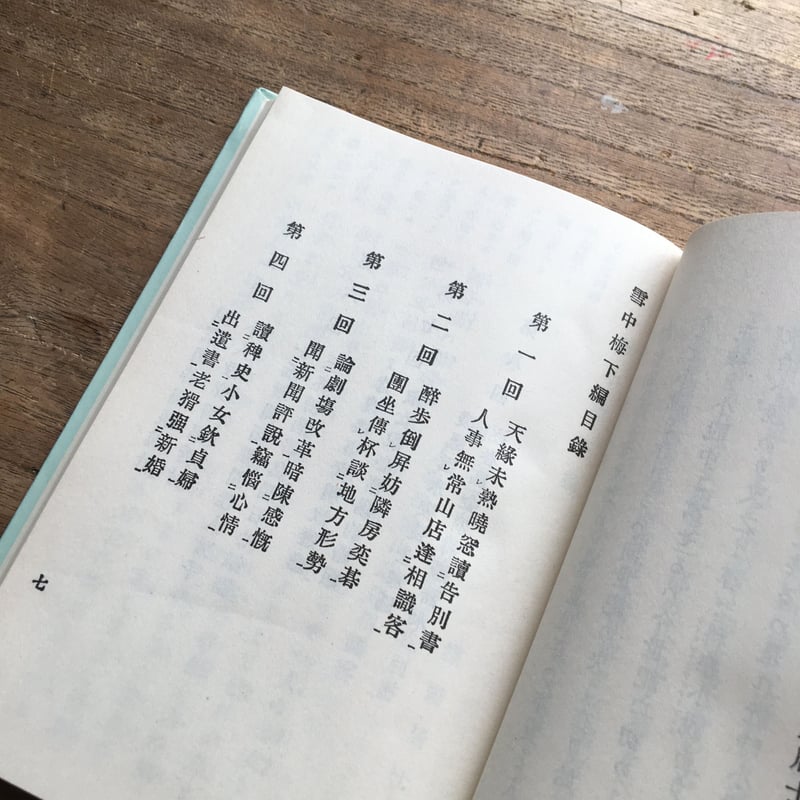 雪中梅下編目錄
第一回 天緣未熟曉窓讀告別書
人事無常山店逢相識客
第二回 醉步倒屛妨隣房奕碁
團坐傳杯談地方形勢
第三回 論劇場改革暗陳感慨
聞新聞評說竊惱心情
第四回 讀稗史小女欽貞婦
出遺書老猾强新婚
七